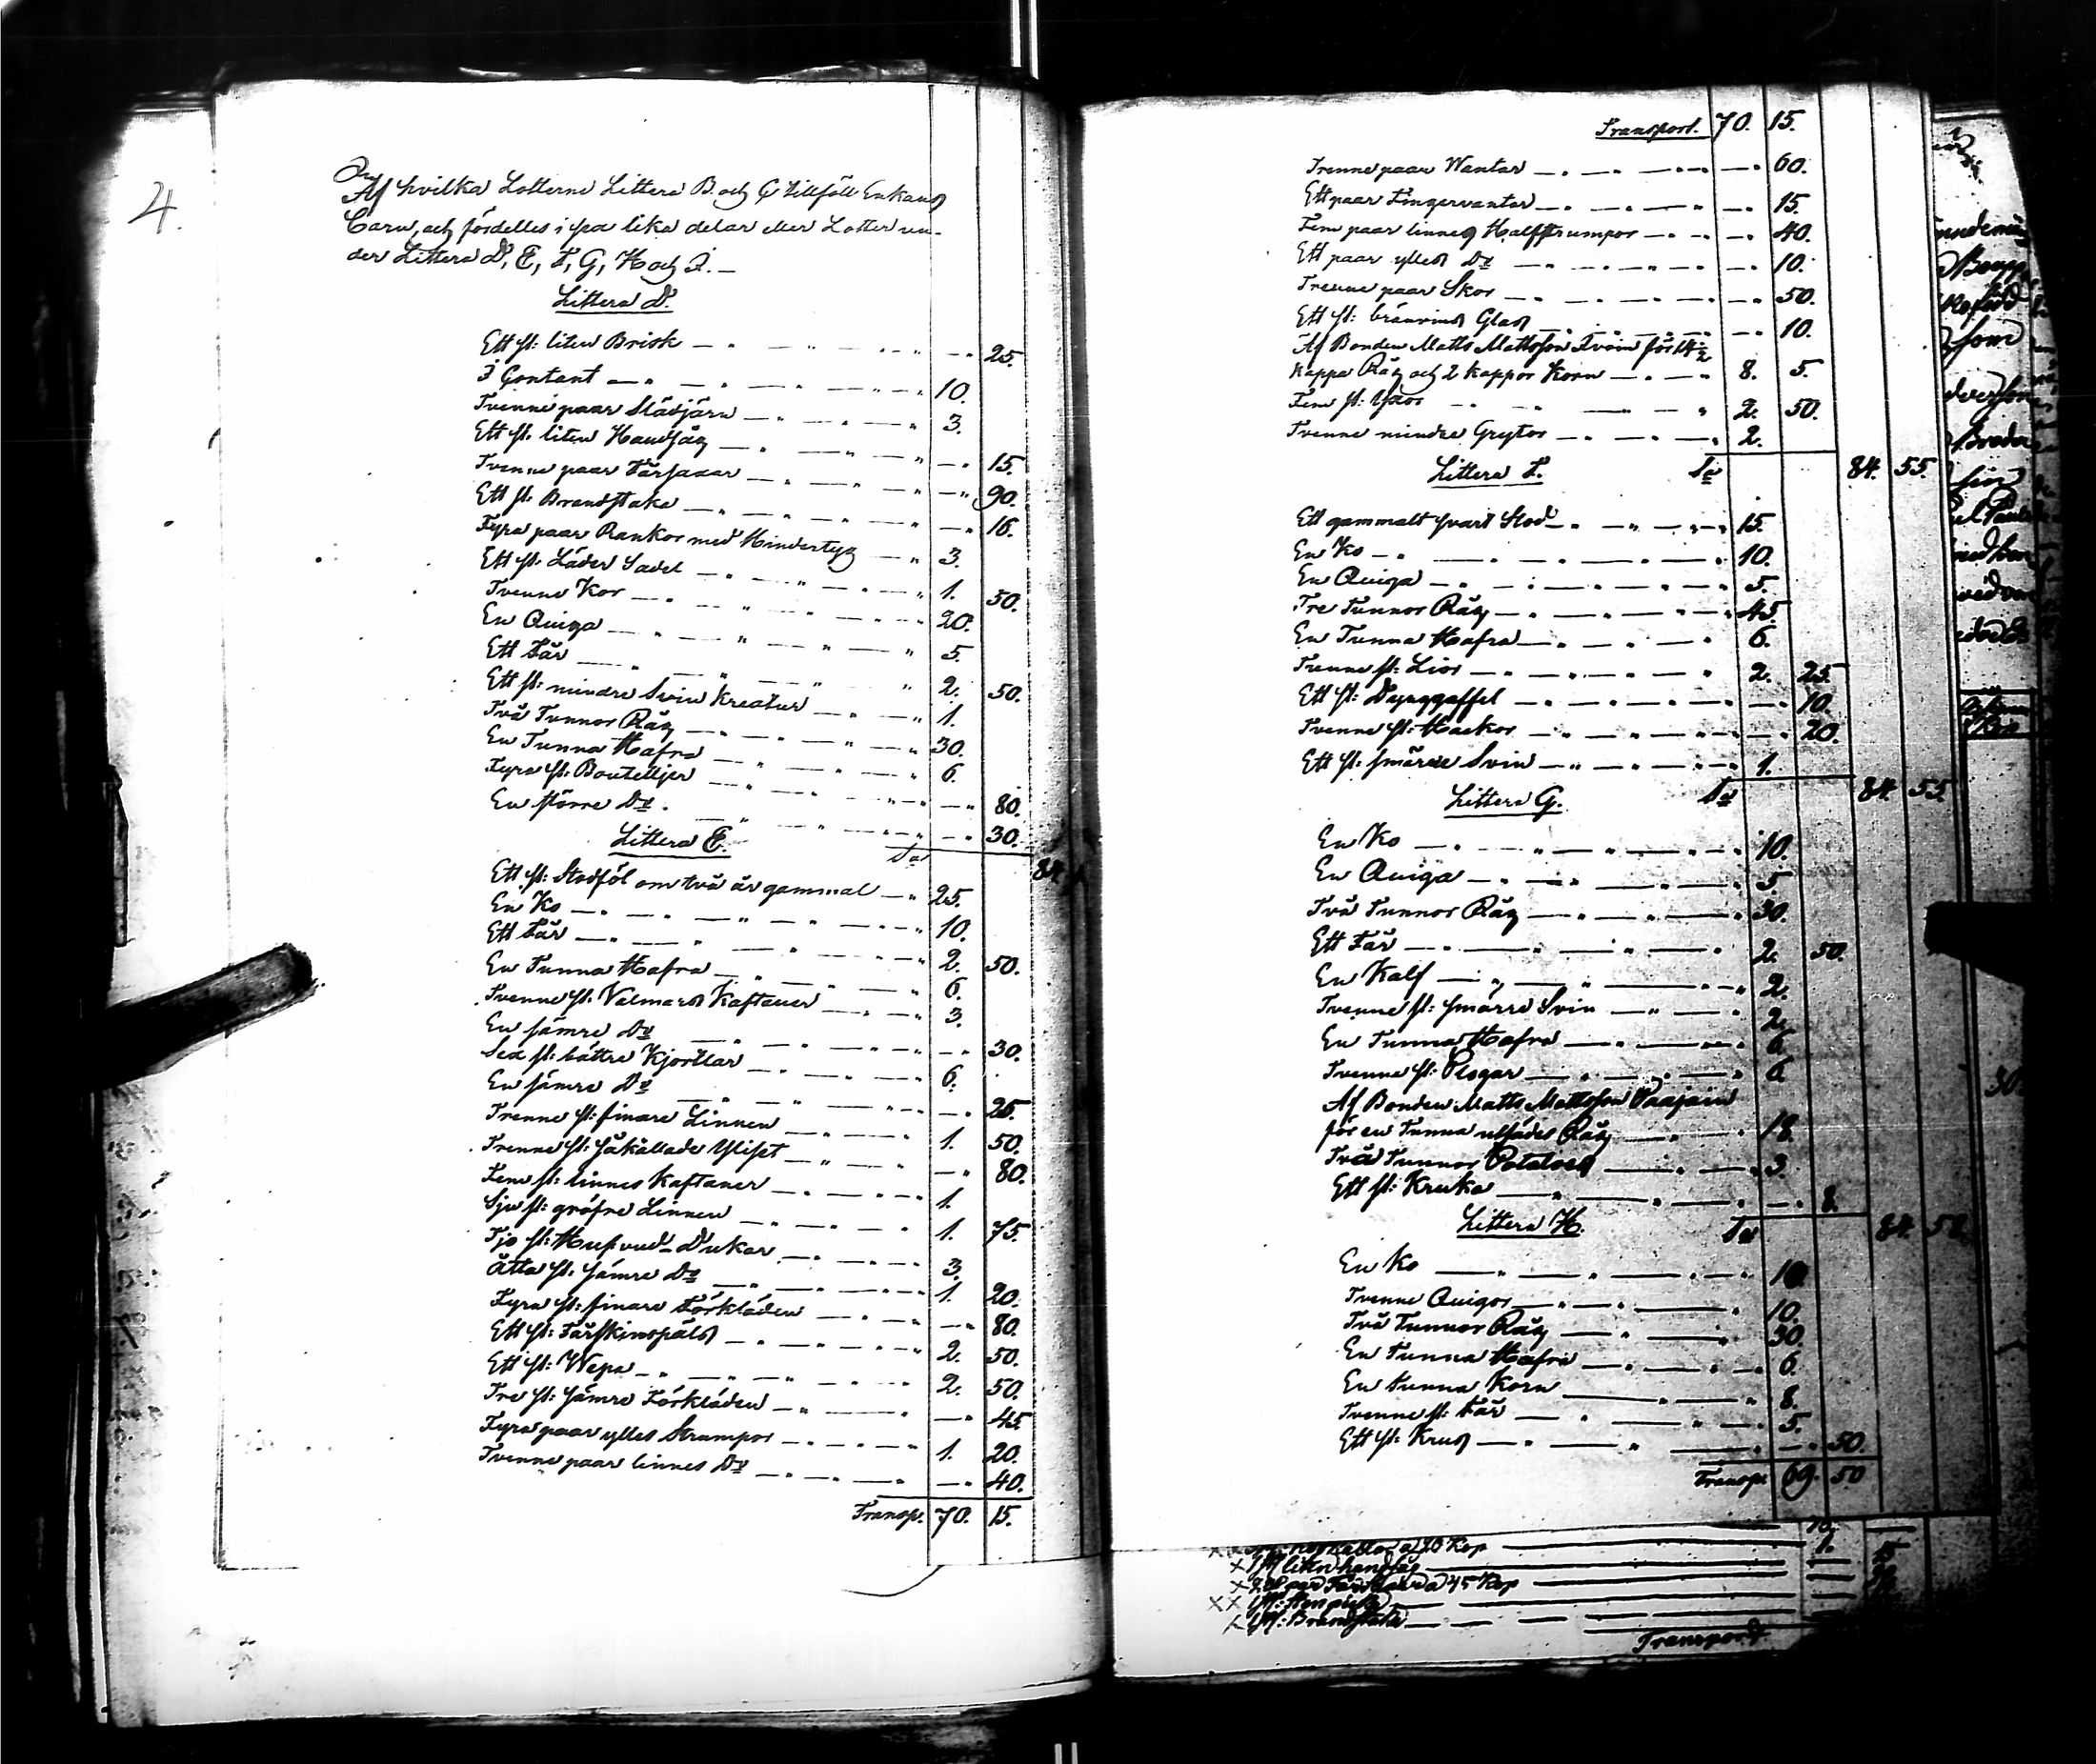 4.
Af hvilka Lotterne Littera B och C tillföll Enkans
Barn, och fördelles i sex lika delar eller Lotter un-
der Littera D, E, F, G, H och I. —
Littera D.
Ett st: liten Brisk — 25.
I Contant — 10.
Tvenne paar Slädjärn — 3.
Ett st. liten Handsåg — 15.
Tvenne paar Fårsaxar — 90.
Ett st. Brandstake — 16.
Fyra paar Rankor med Hindertyg — 3.
Ett st. Läder Sadel — 1. 50.
Tvenne Kor — 20.
En Quiga — 5.
Ett Får — 2. 50.
Ett st: mindre Svin Kreatur — 1.
Två Tunnor Råg — 30.
En Tunna Hafra — 6.
Fyra st: Boutelljer — 80.
En större Do. — 30.
Sa 84.
Littera E.
Ett st: Stodföl om två år gammal — 25.
En Ko — 10.
Ett Får — 2. 50.
En Tunna Hafra — 6.
Tvenne st. Valmars Kaftaner — 3.
En sämre Do — 30.
Sex st: bättre Kjortlar — 6.
En sämre Do — 25.
Trenne st: finare Linnen — 1. 50.
Trenne st: såkallade — 80.
Fem st: linnes Kaftaner — 1.
Sju st: gröfre Linnen — 1. 75.
Tjo st: Hufvud-Dukar — 3.
Åtta st: sämre Do — 1. 20.
Fyra st: finare Förkläden — 80.
Ett st: Fårskinspäls — 2. 50.
Ett st: Wepa — 2. 50.
Tre st: sämre Förkläden — 45.
Fyra paar ylles Strumpor — 1. 20.
Tvenne paar linnes Do — 40.
Transp. 70. 15.
Transport. 70. 15.
Trenne paar Wantar — 60.
Ett paar Fingervantar — 15.
Fem paar linnes Halfstrumpor — 40.
Ett paar ylles Do — 10.
Trenne paar Skor — 50.
Ett st: bränvins Glas — 10.
Af Bonden Matts Mattsson för 14½
Kappa Råg och 2 kappor Korn — 8. 5.
Fem st: — 2. 50.
Tvenne mindre Grytor — 2.
Sa 84. 55.
Littera F.
Ett gammalt svart Stod — 15.
En Ko — 10.
En Quiga — 5.
Tre Tunnor Råg — 45.
En Tunna Hafra — 6.
Tvenne st: Lior — 2. 25.
Ett st: Dynggaffel — 10.
Tvenne st: Hackor — 20.
Ett st: smärre Svin — 1.
Sa 84. 55.
Littera G.
En Ko — 10.
En Quiga — 5.
Två Tunnor Råg — 30.
Ett Får — 2. 50.
En Kalf — 2.
Tvenne st: smärre Svin — 2.
En Tunna Hafra — 6.
Tvenne st: Plogar — 6.
Af Bonden Matts Mattsson
för en Tunna utsådes Råg — 18.
Två Tunnor Potatoes — 3.
Ett st: Kruka — 8.
Sa 84. 58.
Littera H.
En Ko — 10.
Tvenne Quigor — 10.
Två Tunnor Råg — 30.
En Tunna Hafra — 6.
En tunna Korn — 8.
Tvenne st: Får — 5.
Ett st: Krus — 50.
Transp. 69. 50
a 20 Kop
X 1 st liten handsåg
X 2 par a 45 Kop
XX 1 st:
X 1 st: Brandstake
Transport.